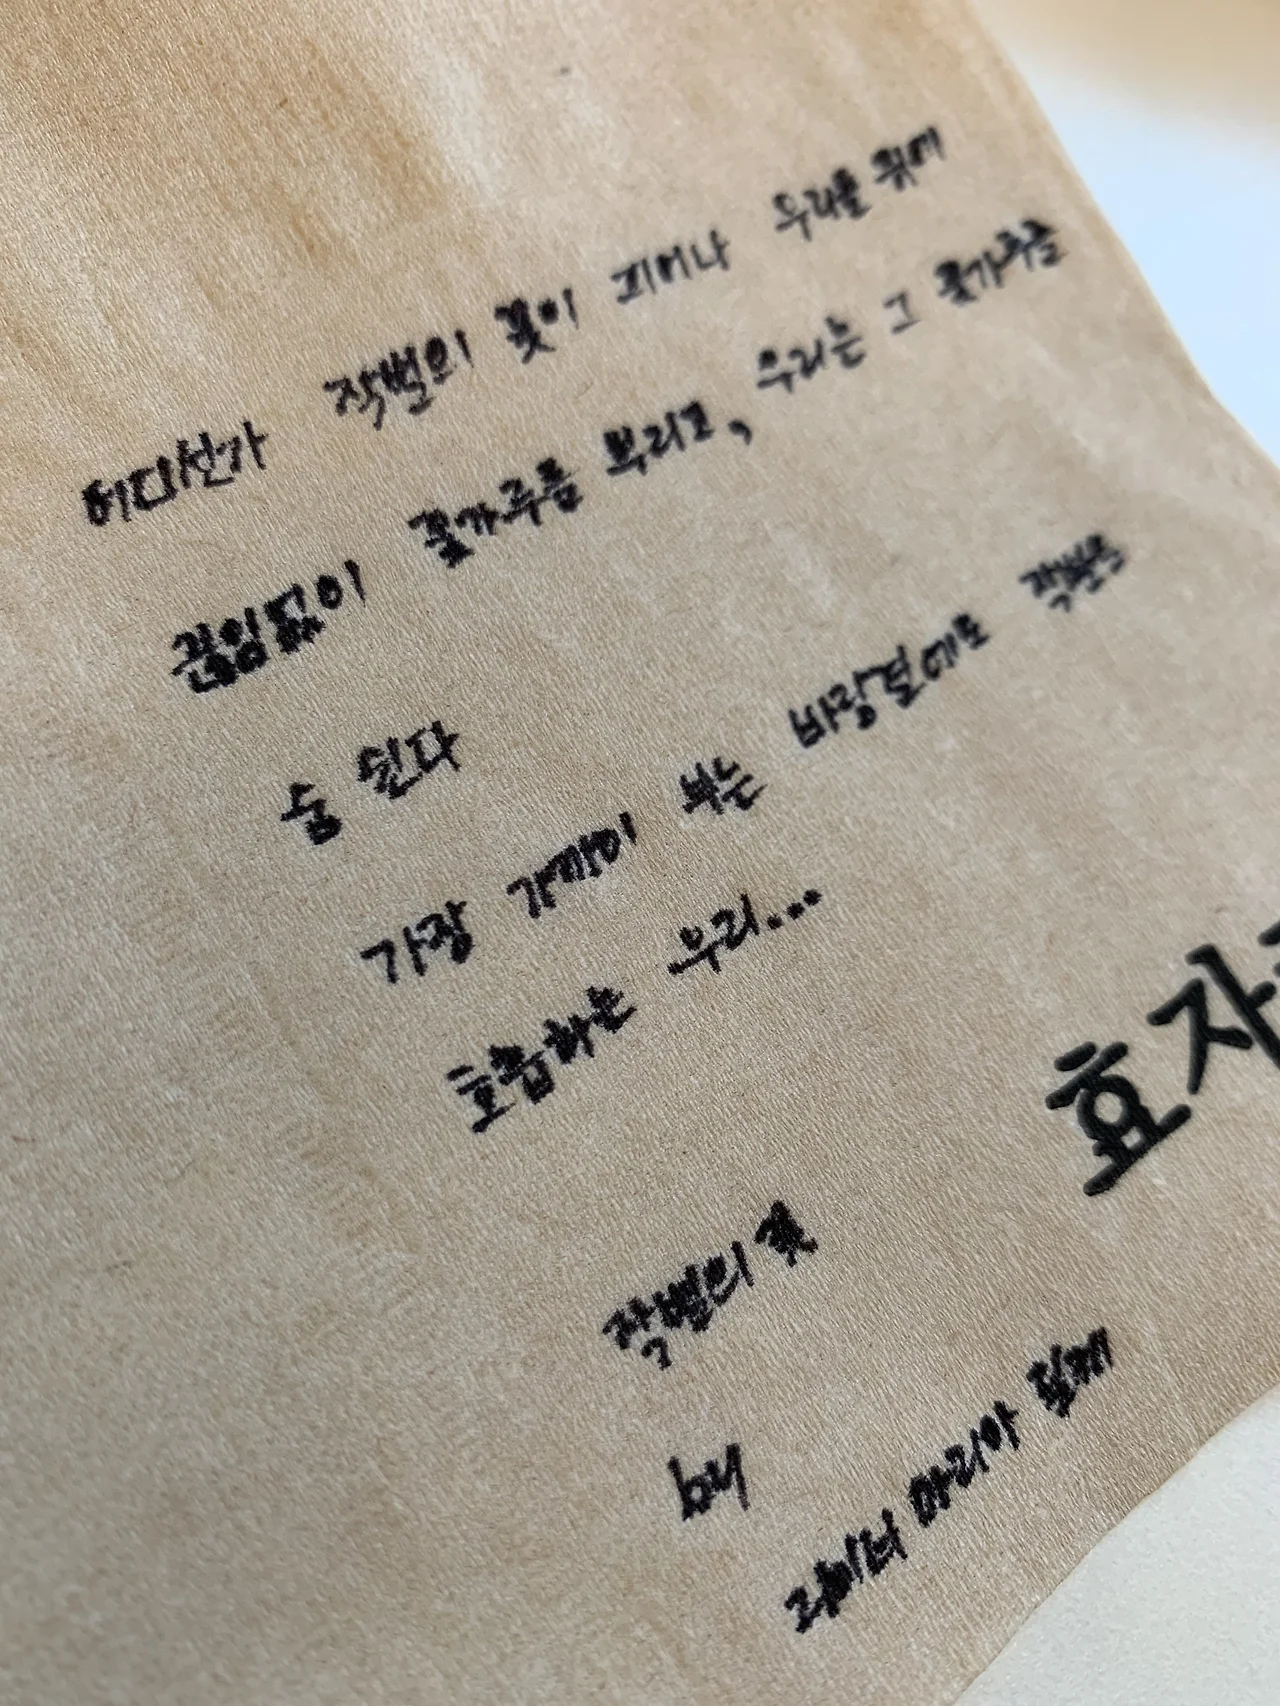 어디선가 작별의 꽃이 피어나 우리를 위에
끊임없이 꽃가루를 뿌리고, 우리는 그 꽃가루를
숨 쉰다
가장 가까이 부는 바람결에도 작별을
호흡하는 우리...
작별의 꽃
by
라이너 마리아 릴케
효자